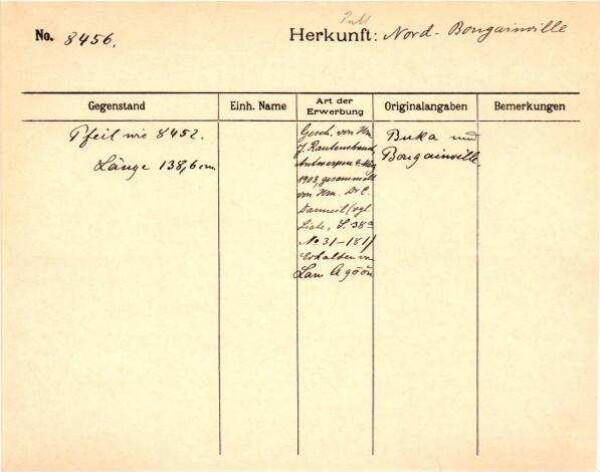 No. 8456.
Herkunft: Nord-Bougainville
Gegenstand
Einh. Name
Art der Erwerbung
Originalangaben
Bemerkungen
Pfeil wie 8452.
Länge 138,6 cm.
Gesch. von Hrn.
J. Rautenstrauch,
Antwerpen
1903, gesammelt
von Hrn. Dr. C.
(vgl.
Liste, S. 38a
No 31-181)
Erhalten von
Lau
Buka und
Bougainville.